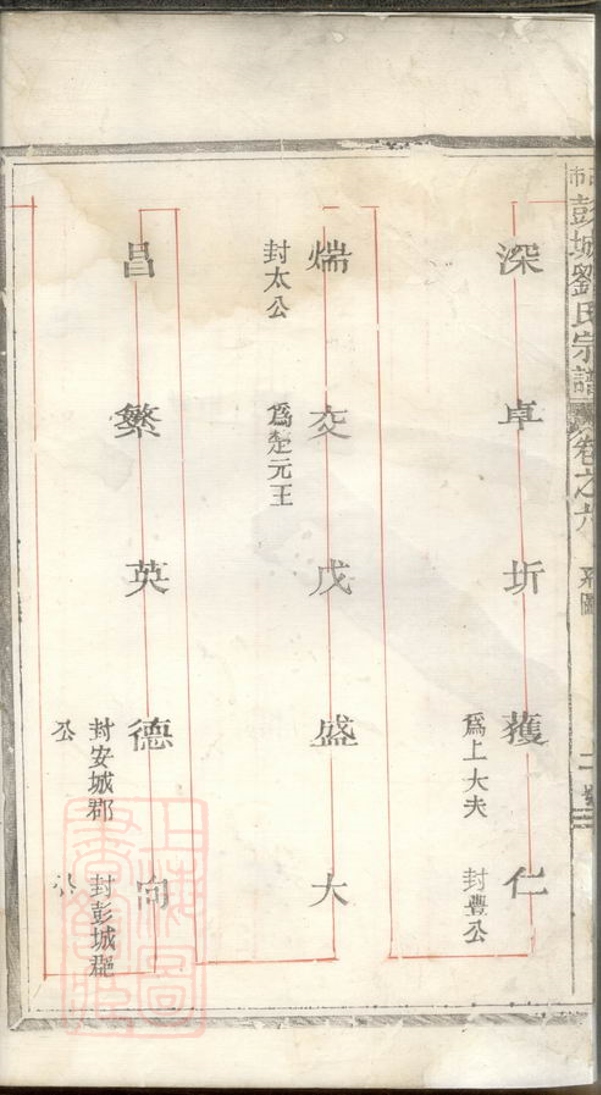 彭城劉氏宗譜
卷之六
系圖
深
卓
圻
獲
爲上大夫
仁
封豐公
煓
封太公
交
爲楚元王
戊
盛
大
昌
繁
英
德
封安城郡
公
向
封彭城郡
公
上海圖
書館藏